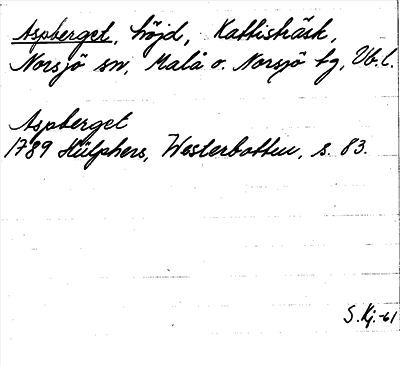 Aspberget, höjd, Kattisträsk,
Norsjö sn, Malå o. Norsjö tg, Vb.l.
Aspberget
1789 Hülphers, Westerbotten, s. 83.
S. Kj.-61